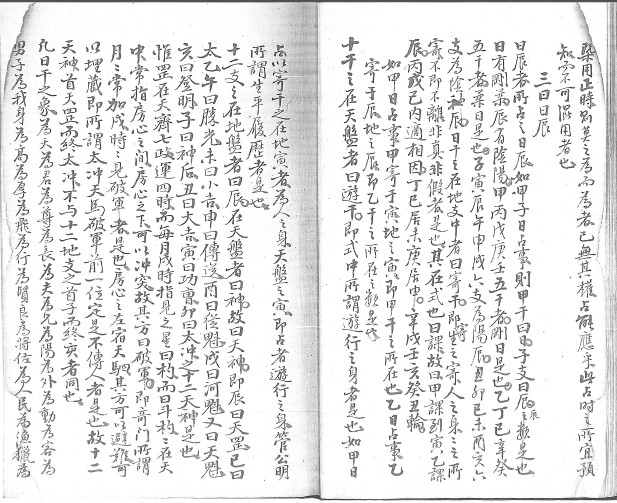 棄用正時別莫之為而為者已無其權占嚴應乎此占時之所宜預
知而不可混用者也
三曰日辰
日辰者所占之日辰如甲子日占事則甲曰日子支曰辰之類是也
日有剛柔辰有陰陽甲丙戊庚壬五干者剛日是也乙丁己辛癸
五干者柔日是也子寅辰午申戌六支為陽辰丑卯巳未酉亥六
支為陰神辰日干之在地支中者曰寄干即生之寄人之身之所
寄不即不離非真非假者是也其在式也曰課故曰甲課到寅乙課
辰丙戊巳丙適相因丁己居未庚居申辛戌壬亥癸丑輪
如甲日占事甲寄于寅地之寅即甲干之所在也乙日占事乙
寄于辰地之辰即乙干之所在之類是也
十干之在天盤者曰遊干即式中所謂遊行之身者是也如甲日
占以寄干之在地寅者為人之身天盤之寅即占者遊行之身管公明
所謂生平履歷者是也
十二支之在地盤者曰辰在天盤者曰神故曰天神即辰曰天罡巳曰
太乙午曰勝光未曰小吉申曰傳送酉曰從魁戌曰河魁又曰天魁
亥曰登明子曰神后丑曰大吉寅曰功曹卯曰太沖之十二天神是也
惟罡在天齊七政運四時而每月戌時指見之星曰杓而曰斗杓之在天
中常指房心之間房心之下可以沖突故其方曰破軍即奇門所謂
月之常加戌時之見破軍者是也房心之左宿天駟其方可以避難可
以埋藏即所謂太沖天馬破軍前一位定是不傳人者是也故十二
天神首天罡而終太沖不与十二地支之首子而終亥者同也
凡日干之象為天為君為尊為長為夫為兄為陽為外為動為客為
男子為我身為高為厚為飛為行為賢良為將任為人民為漁獵為